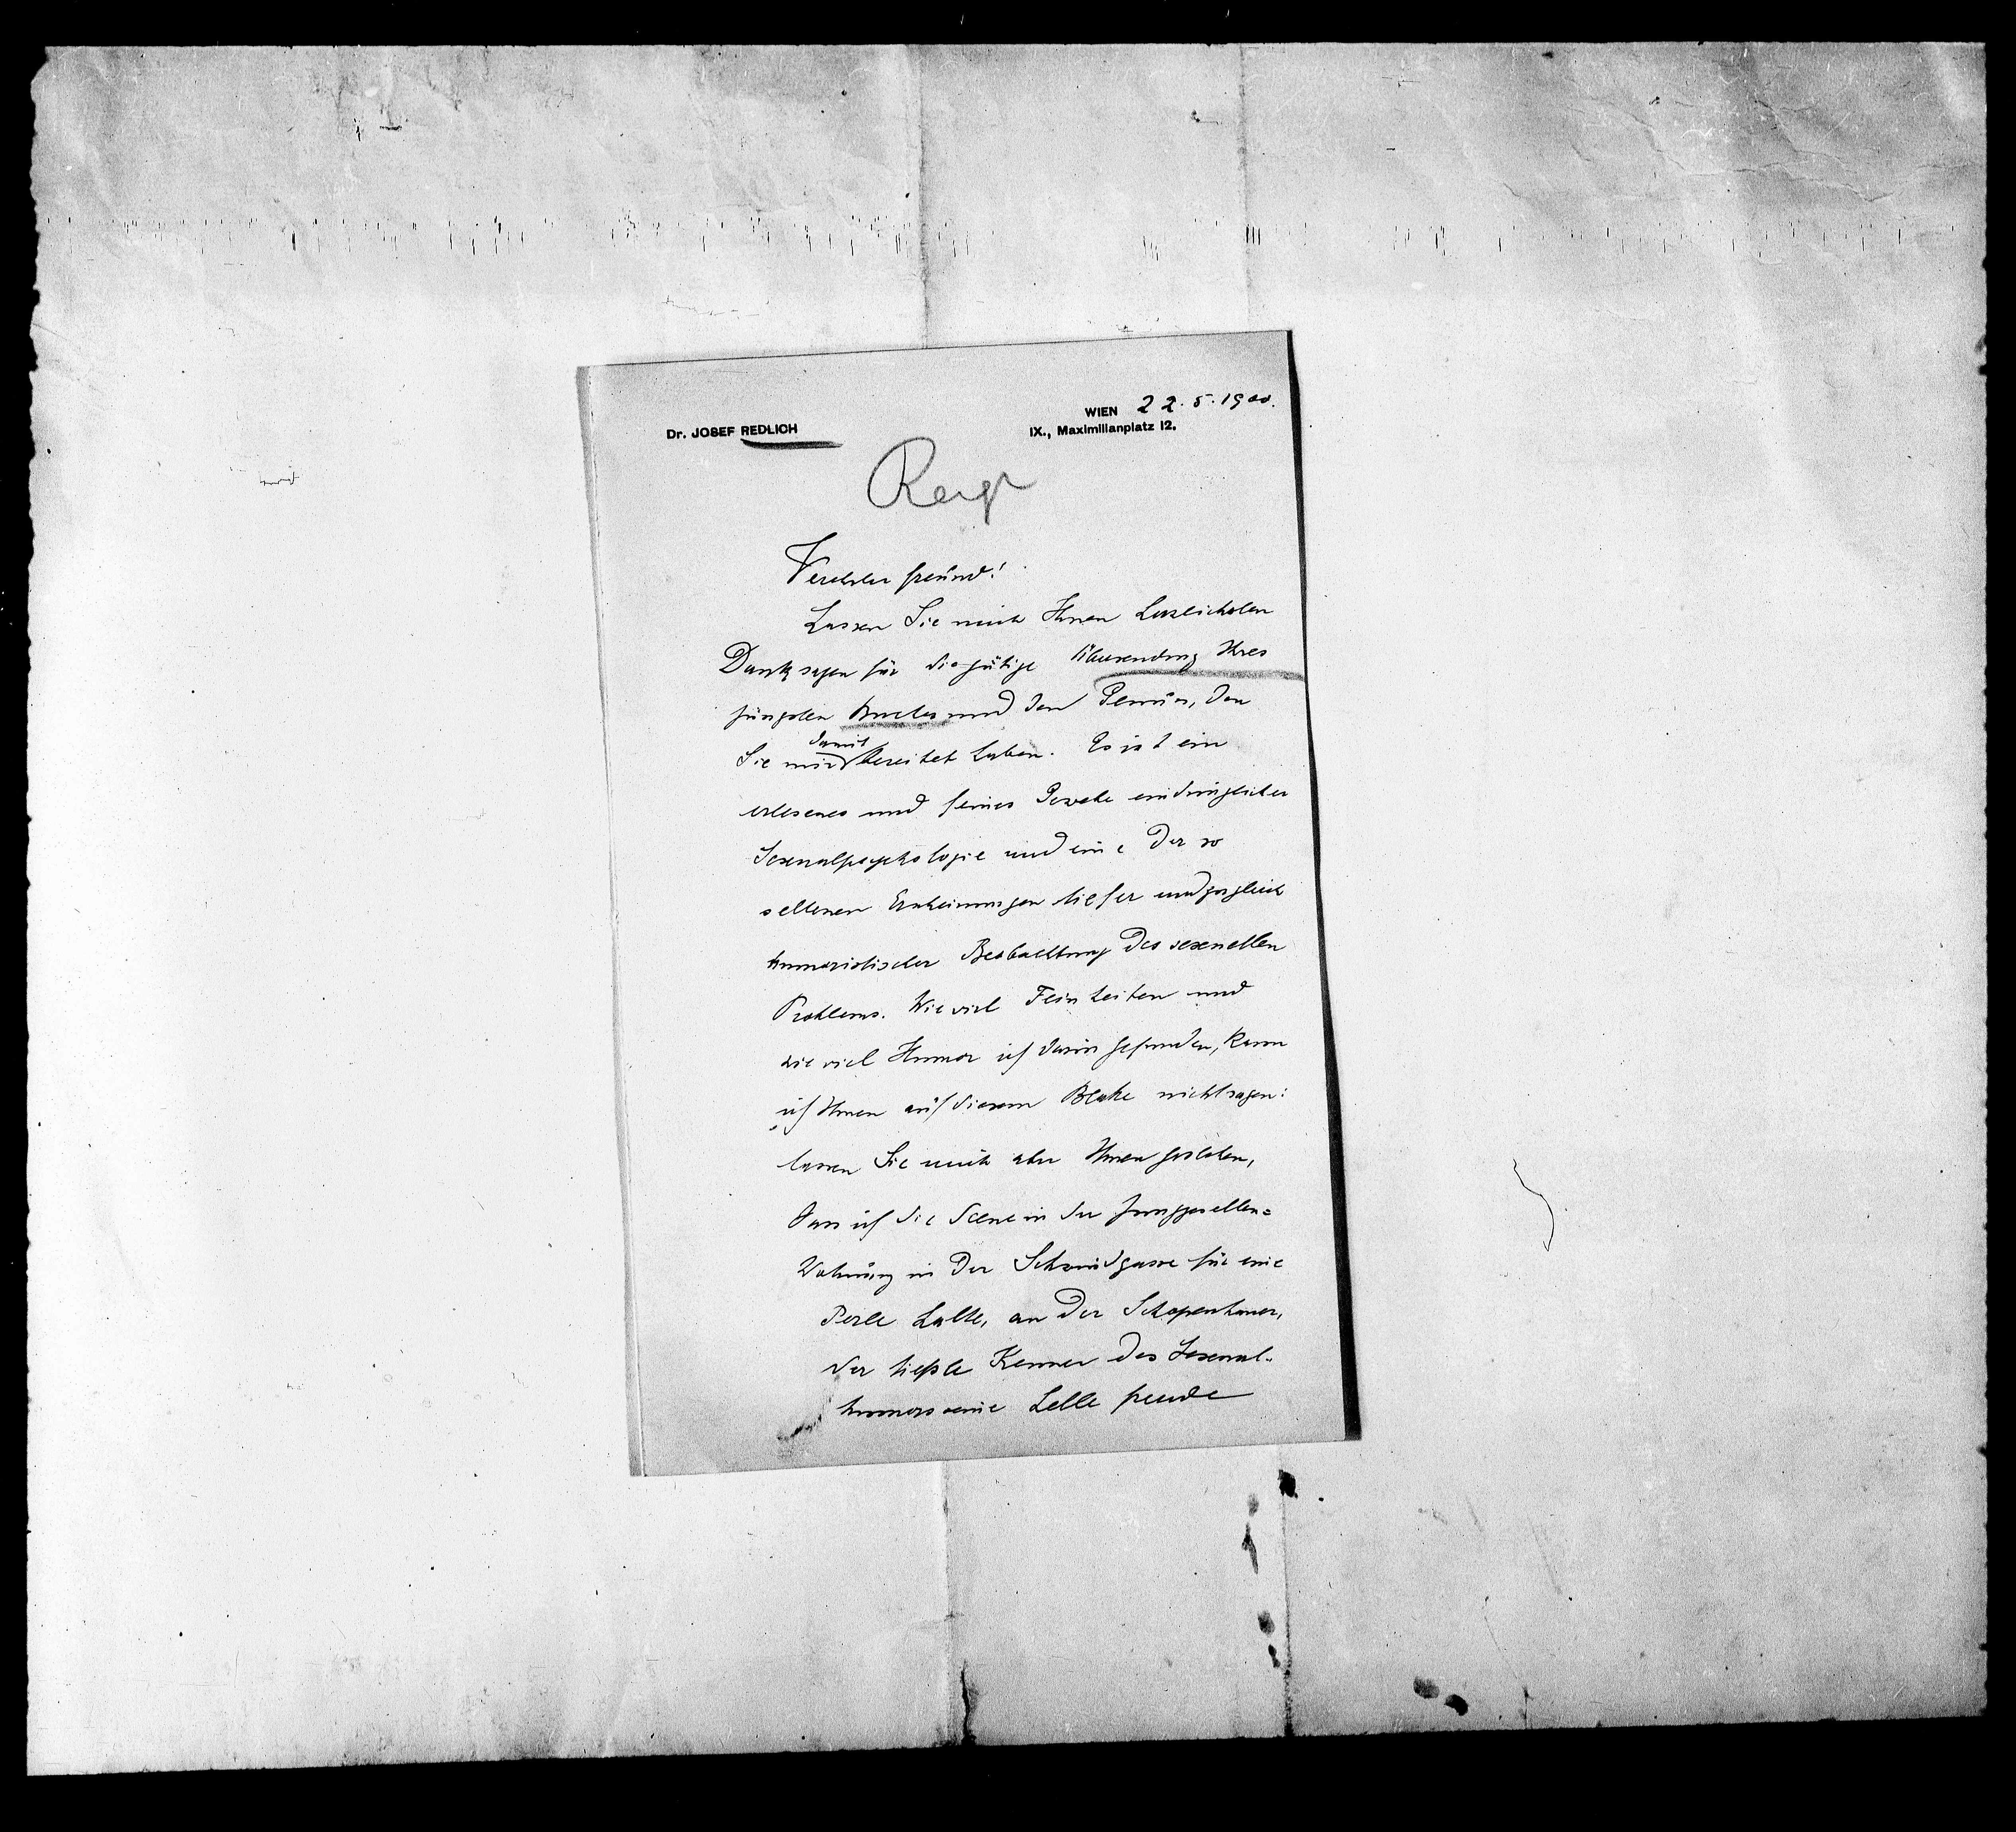 WIEN 22.5.1900.
Dr. JOSEF REDLICH
IX., Maximilianplatz 12.
Reigen
Verehrter Freund!
Lassen Sie mich Ihnen herzlichsten
Dank sagen für die gütige Übersendung Ihres
jüngsten Buches und den Genuss, den
Sie mir damit bereitet haben. Es ist ein
erlesenes und feines Gewebe eindringlicher
Sexualpsychologie und eine der so
seltenen Erscheinungen tiefer und zugleich
humoristischer Beobachtung des sexuellen
Problems. Wie viel Feinheiten und
wie viel Humor ich darin gefunden, kann
ich Ihnen auf diesem Blatte nicht sagen:
lassen Sie mich aber Ihnen gestehen,
dass ich die Scene in der Junggesellen=
Wohnung in der Schwindgasse für eine
Perle halte, an der Schopenhauer,
der tiefste Kenner des Sexual-
humors seine helle Freude